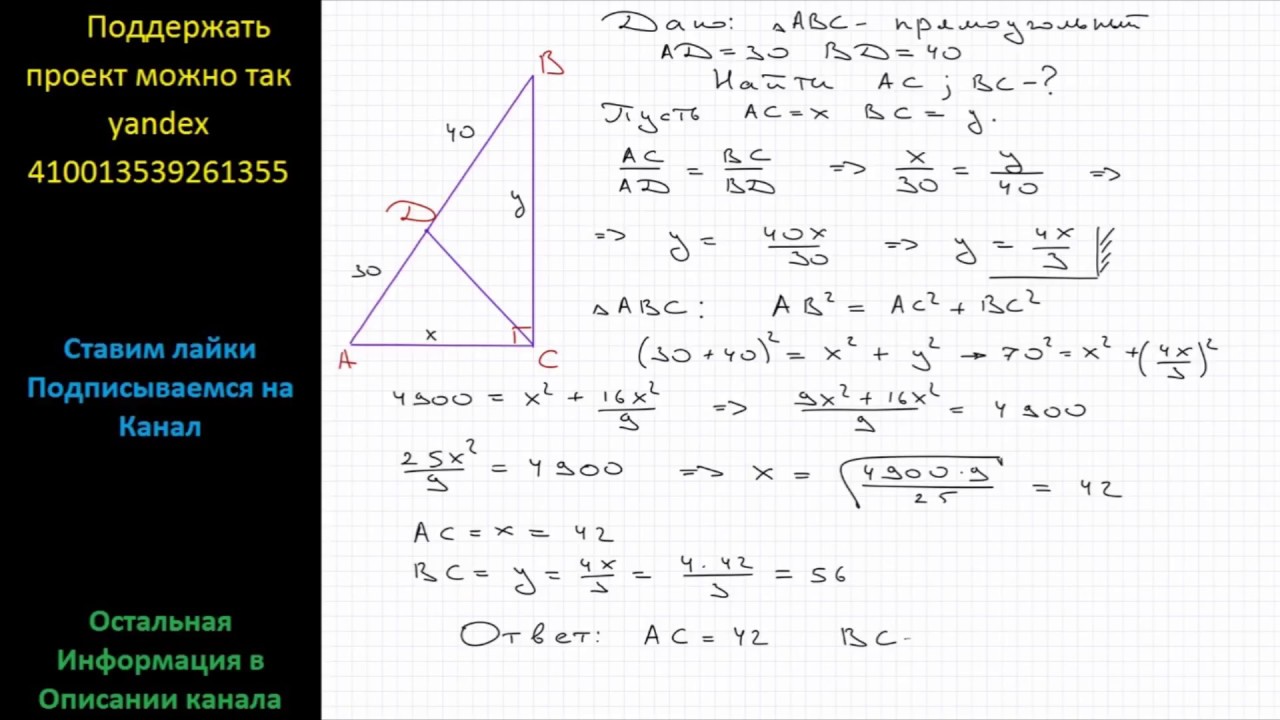 Поддержать
проект можно так
yandex
410013539261355
Ставим лайки
Подписываемся на
Канал
Остальная
Информация в
Описании канала
B
40
D
y
30
x
A
C
Дано: △ABC - прямоугольный
AD = 30 BD = 40
Найти AC ; BC - ?
Пусть AC = x BC = y.
AC/AD = BC/BD => x/30 = y/40 =>
=> y = 40x/30 => y = 4x/3
△ABC: AB² = AC² + BC²
(30 + 40)² = x² + y² → 70² = x² + (4x/3)²
4900 = x² + 16x²/9 => (9x² + 16x²)/9 = 4900
25x²/9 = 4900 => x = √(4900 · 9/25) = 42
AC = x = 42
BC = y = 4x/3 = 4 · 42/3 = 56
Ответ: AC = 42 BC -